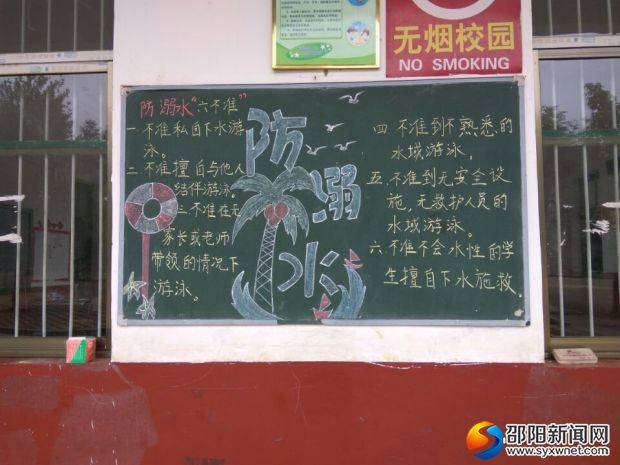 无烟校园
NO SMOKING
防溺水“六不准”
一 不准私自下水游
泳。
二 不准擅自与他人
结伴游泳。
三 不准在无
家长或老师
带领的情况下
游泳。
防溺水
四 不准到不熟悉的
水域游泳,
五 不准到无安全设
施,无救护人员的
水域游泳。
六 不准不会水性的学
生擅自下水施救.
邵阳新闻网
www.syxwnet.com